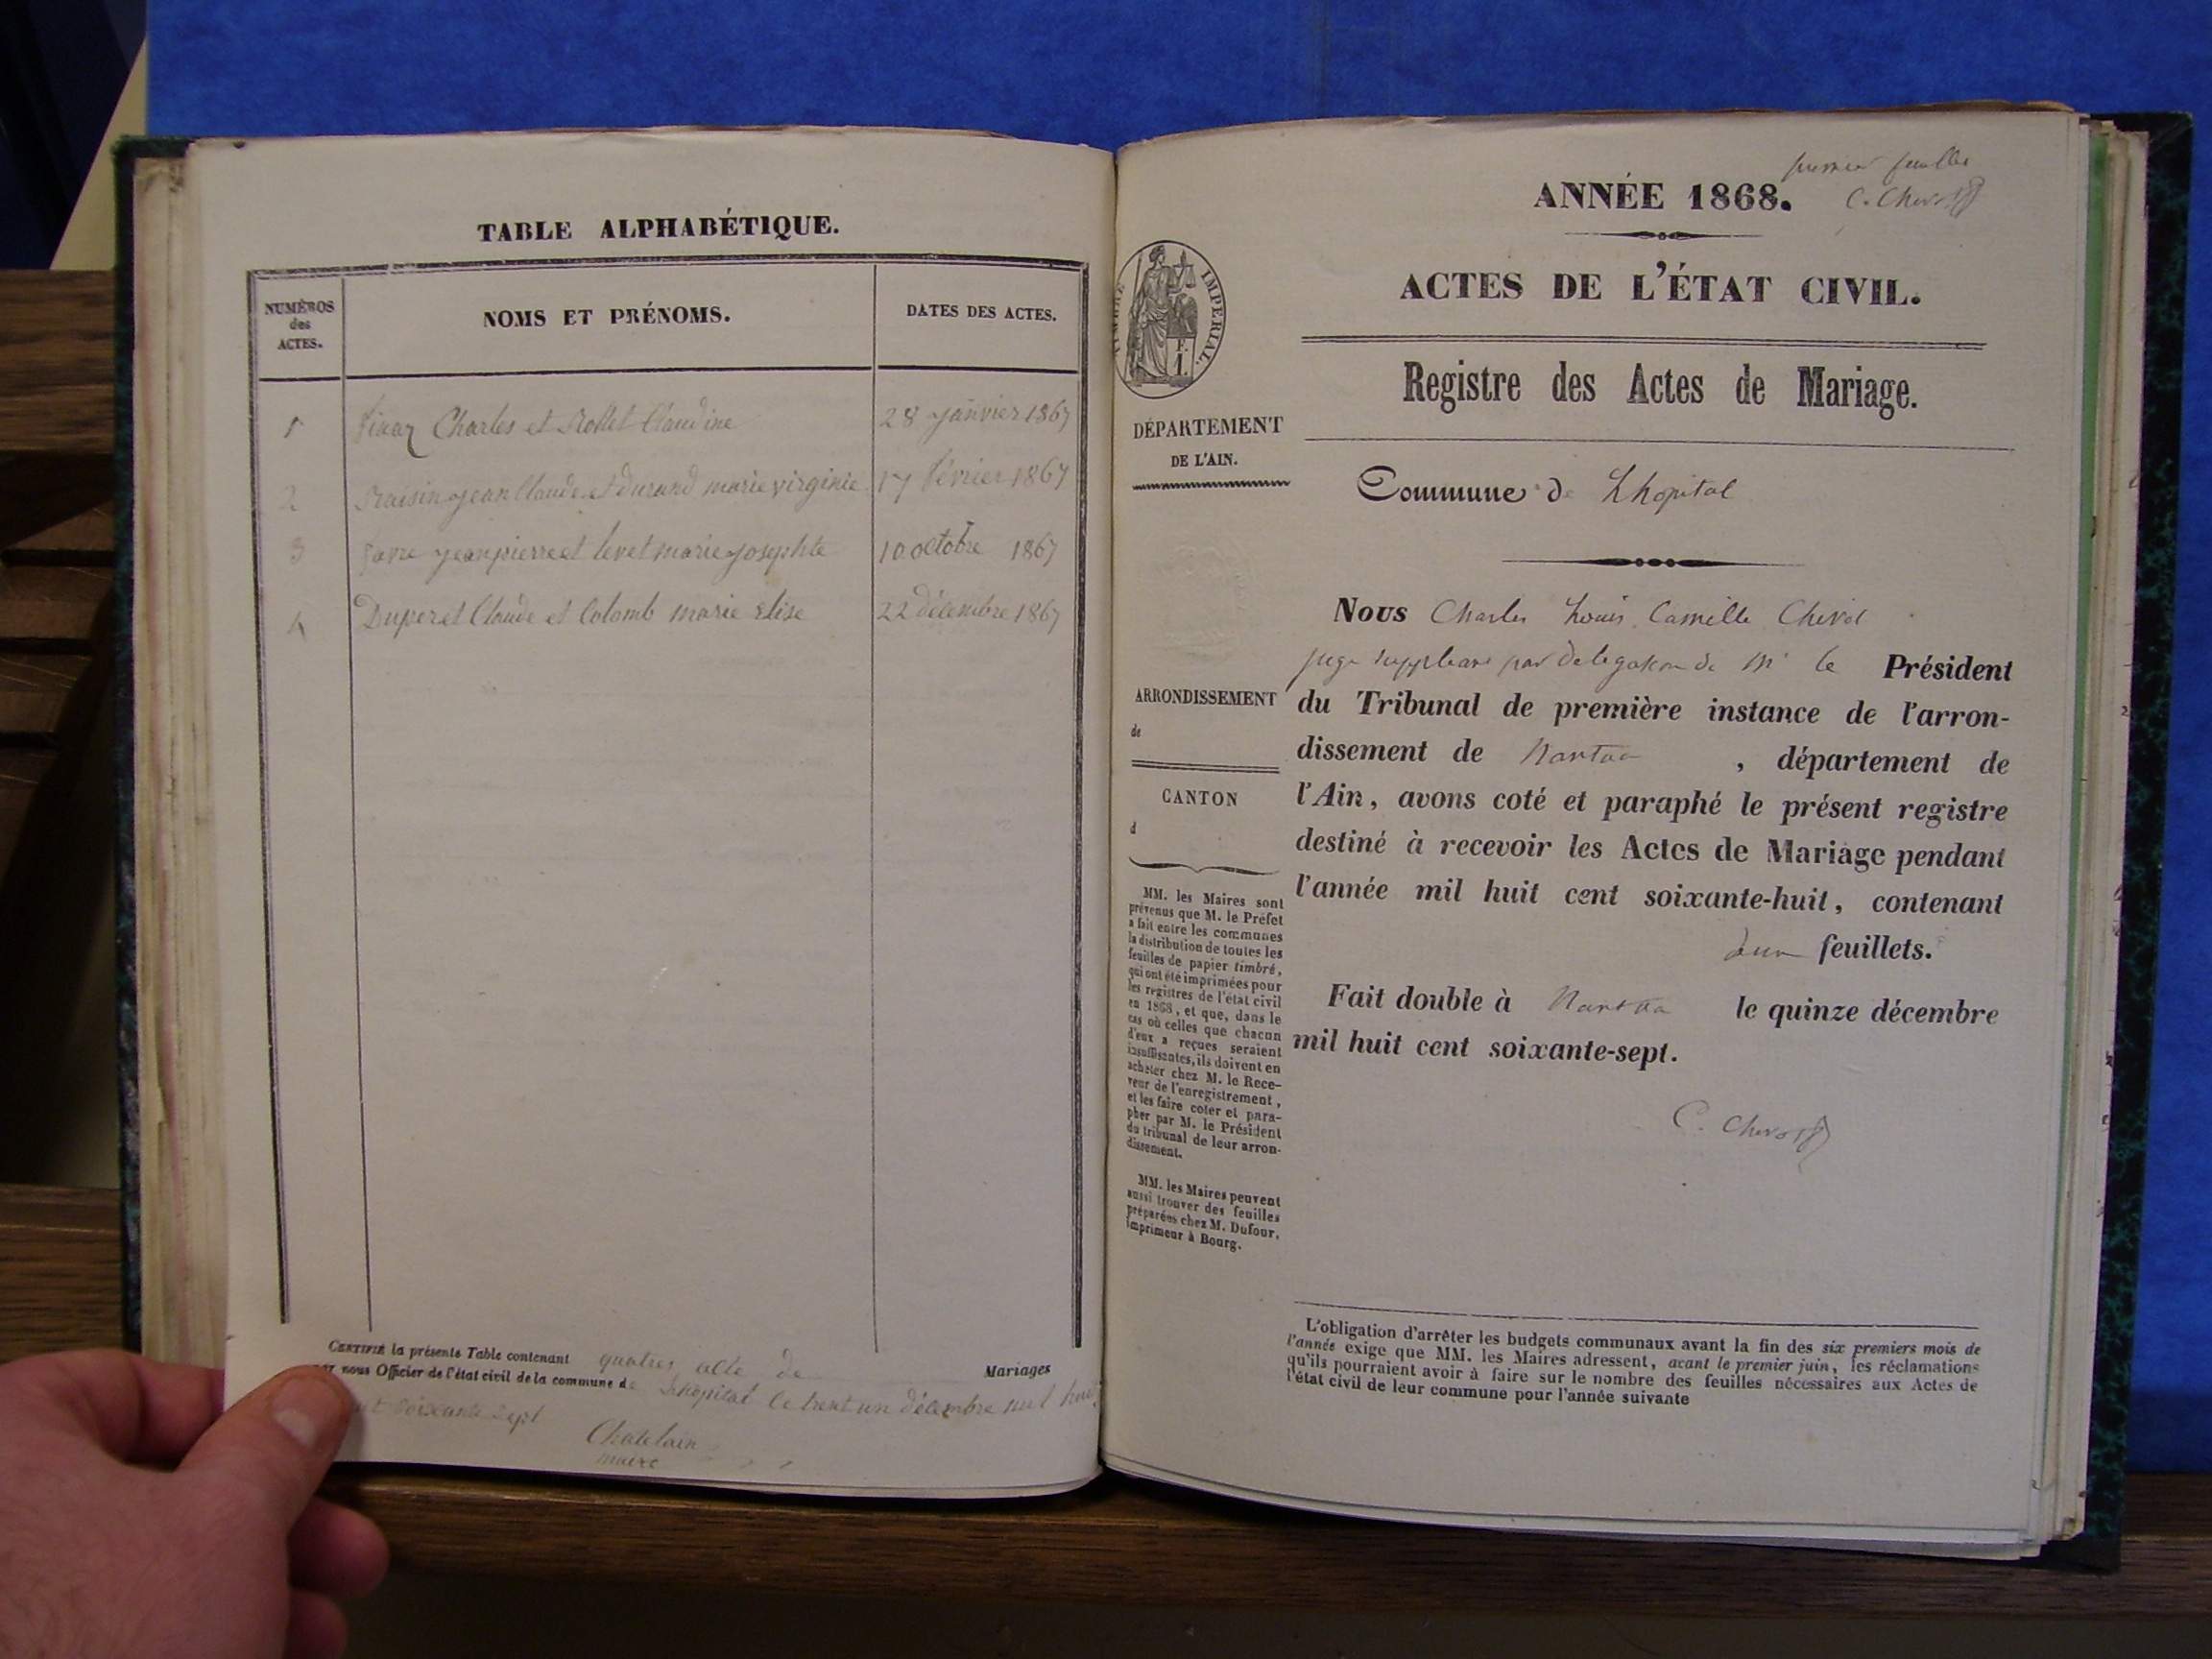 TABLE ALPHABÉTIQUE.
NUMÉROS
des
ACTES.
NOMS ET PRÉNOMS.
DATES DES ACTES.
1 Charles et Rollet Claudine 28 janvier 1867
2 Raisin jean Claude et durand marie virginie 17 février 1867
3 favre jean pierre et levet marie josephte 10 octobre 1867
4 Duperet Claude et Colomb marie Elise 22 décembre 1867
CERTIFIÉ la présente Table contenant quatres acte de Mariages
nous Officier de l'état civil de la commune de Lhopital le trent un décembre mil huit
soixante sept
Chatelain
maire
premier feuillet
ANNÉE 1868. C. Chevot
ACTES DE L'ÉTAT CIVIL.
Registre des Actes de Mariage.
TIMBRE IMPERIAL.
F.
1.
DÉPARTEMENT
DE L'AIN.
Commune de Lhopital
Nous Charles Louis Camille Chevot
juge suppleant par delegation de Mr le Président
du Tribunal de première instance de l'arron-
dissement de Nantua , département de
l'Ain, avons coté et paraphé le présent registre
destiné à recevoir les Actes de Mariage pendant
l'année mil huit cent soixante-huit, contenant
deux feuillets.
Fait double à Nantua le quinze décembre
mil huit cent soixante-sept.
C. Chevot
ARRONDISSEMENT
de
CANTON
d
MM. les Maires sont
prévenus que M. le Préfet
a fait entre les communes
la distribution de toutes les
feuilles de papier timbré,
qui ont été imprimées pour
les registres de l'état civil
en 1868, et que, dans le
cas où celles que chacun
d'eux a reçues seraient
insuffisantes, ils doivent en
acheter chez M. le Rece-
veur de l'enregistrement,
et les faire coter et para-
pher par M. le Président
du tribunal de leur arron-
dissement.
MM. les Maires peuvent
aussi trouver des feuilles
préparées chez M. Dufour,
imprimeur à Bourg.
L'obligation d'arrêter les budgets communaux avant la fin des six premiers mois de
l'année exige que MM. les Maires adressent, avant le premier juin, les réclamations
qu'ils pourraient avoir à faire sur le nombre des feuilles nécessaires aux Actes de
l'état civil de leur commune pour l'année suivante